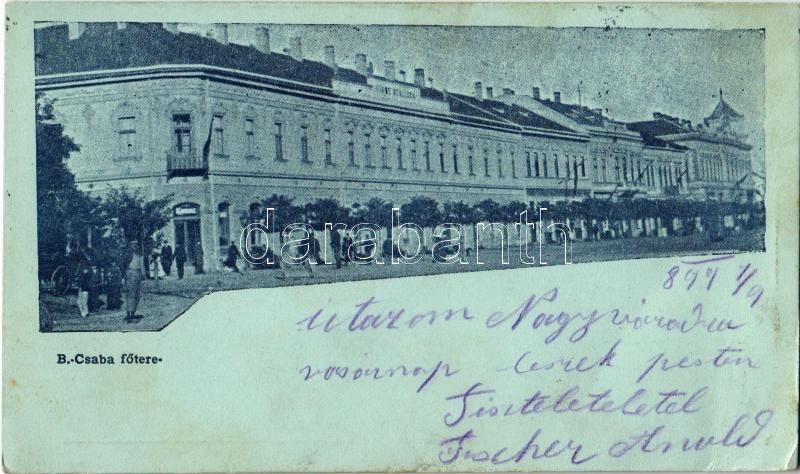 darabanth
B.-Csaba főtere-
899 1/9
utazom Nagyváradra
vasárnap leszek pesten
Tiszteleteletel
Fischer Arnold